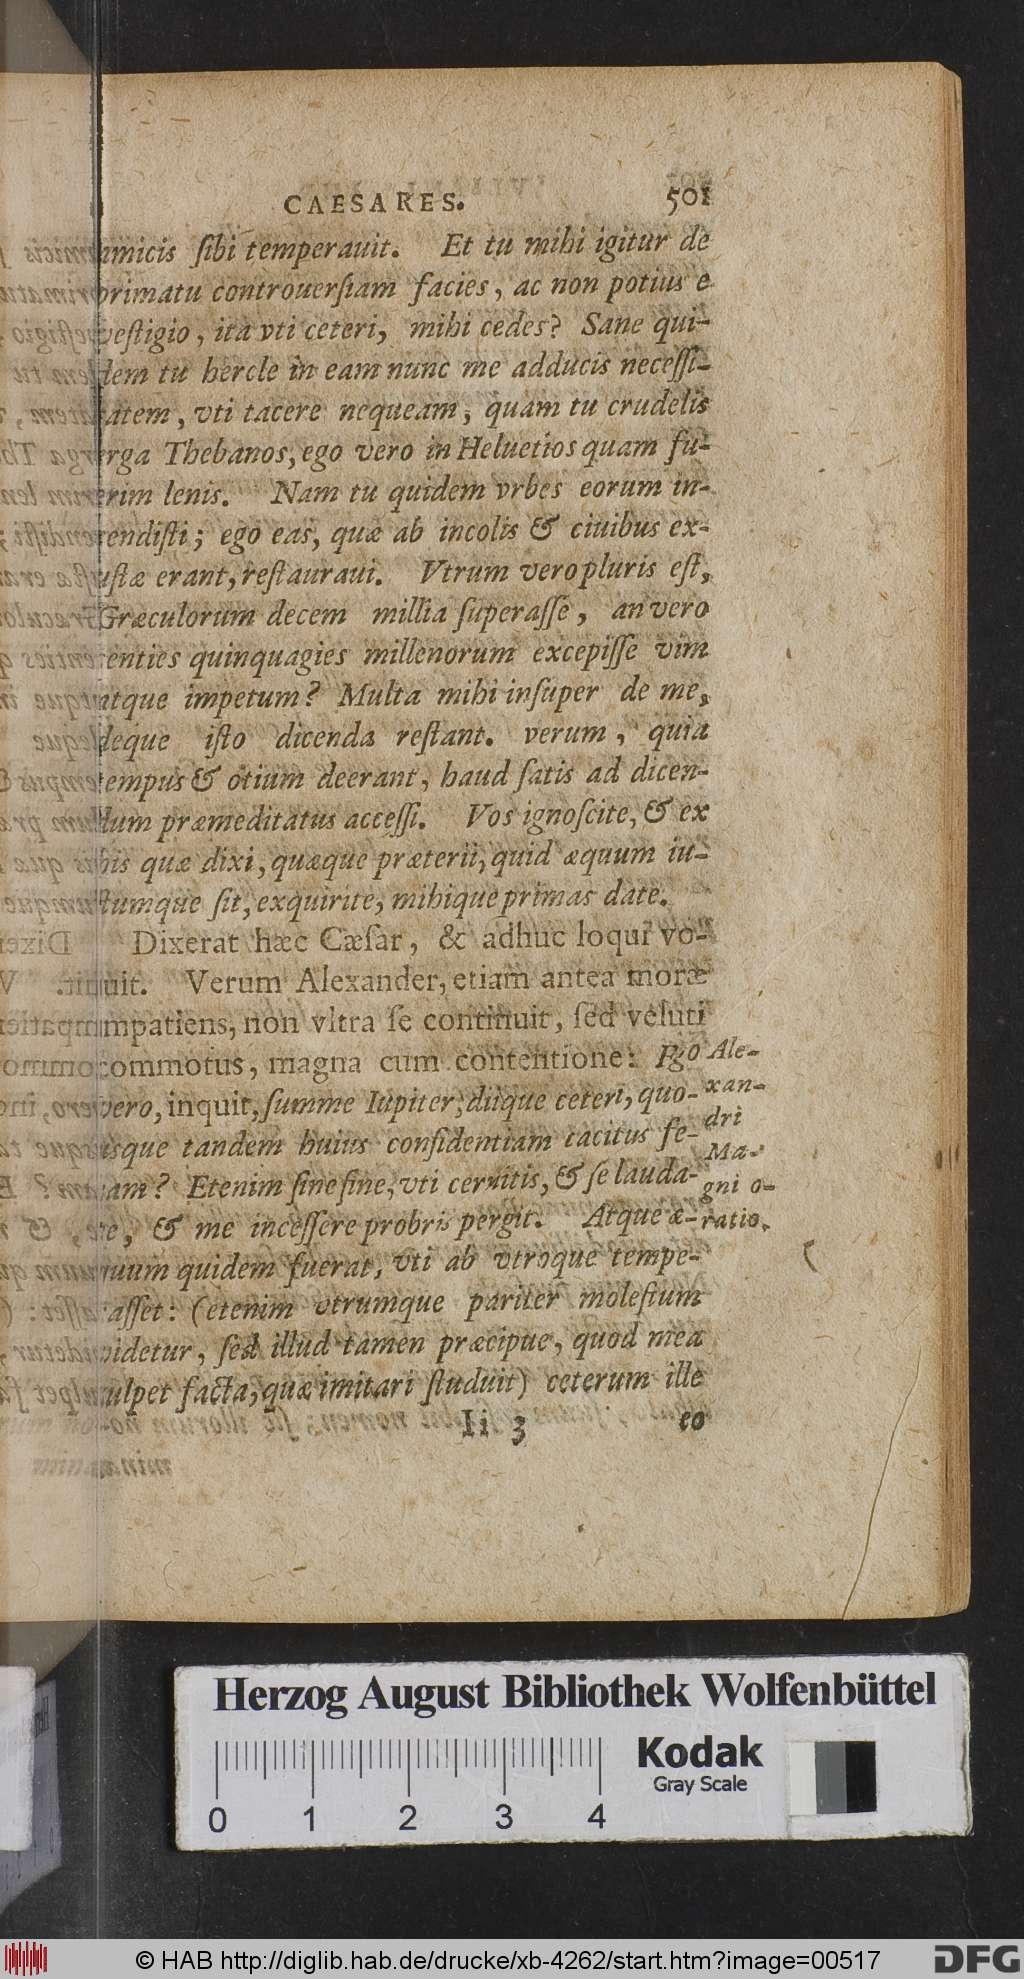 CAESARES. 501
amicis ſibi temperauit. Et tu mihi igitur de
primatu controuerſiam facies, ac non potius e
veſtigio, ita vti ceteri, mihi cedes? Sane qui-
dem tu hercle in eam nunc me adducis neceſſi-
tatem, vti tacere nequeam, quam tu crudelis
erga Thebanos, ego vero in Heluetios quam fu-
erim lenis. Nam tu quidem vrbes eorum in-
cendiſti; ego eas, quæ ab incolis & ciuibus ex-
uſtæ erant, reſtauraui. Vtrum vero pluris eſt,
Græculorum decem millia ſuperaſſe, an vero
centies quinquagies millenorum excepiſſe vim
atque impetum? Multa mihi inſuper de me,
deque iſto dicenda reſtant. verum, quia
tempus & otium deerant, haud ſatis ad dicen-
dum præmeditatus acceſſi. Vos ignoſcite, & ex
his quæ dixi, quæque præterii, quid æquum iu-
ſtumque ſit, exquirite, mihique primas date.
Dixerat hæc Cæſar, & adhuc loqui vo-
luit. Verum Alexander, etiam antea moræ
impatiens, non vltra ſe continuit, ſed veluti
commotus, magna cum contentione: Ego
vero, inquit, ſumme Iupiter, diique ceteri, quo-
usque tandem huius confidentiam tacitus fe-
ram? Etenim ſine fine, vti cernitis, & ſe lauda-
re, & me inceſſere probris pergit. Atque æ-
quum quidem fuerat, vti ab vtroque tempe-
raſſet: (etenim vtrumque pariter moleſtum
videtur, ſed illud tamen præcipue, quod mea
culpet facta, quæ imitari ſtuduit) ceterum ille
Ii 3 eo
Ale-
xan-
dri
Ma-
gni o-
ratio.
Herzog August Bibliothek Wolfenbüttel
Kodak
Gray Scale
0 1 2 3 4
© HAB http://diglib.hab.de/drucke/xb-4262/start.htm?image=00517
DFG